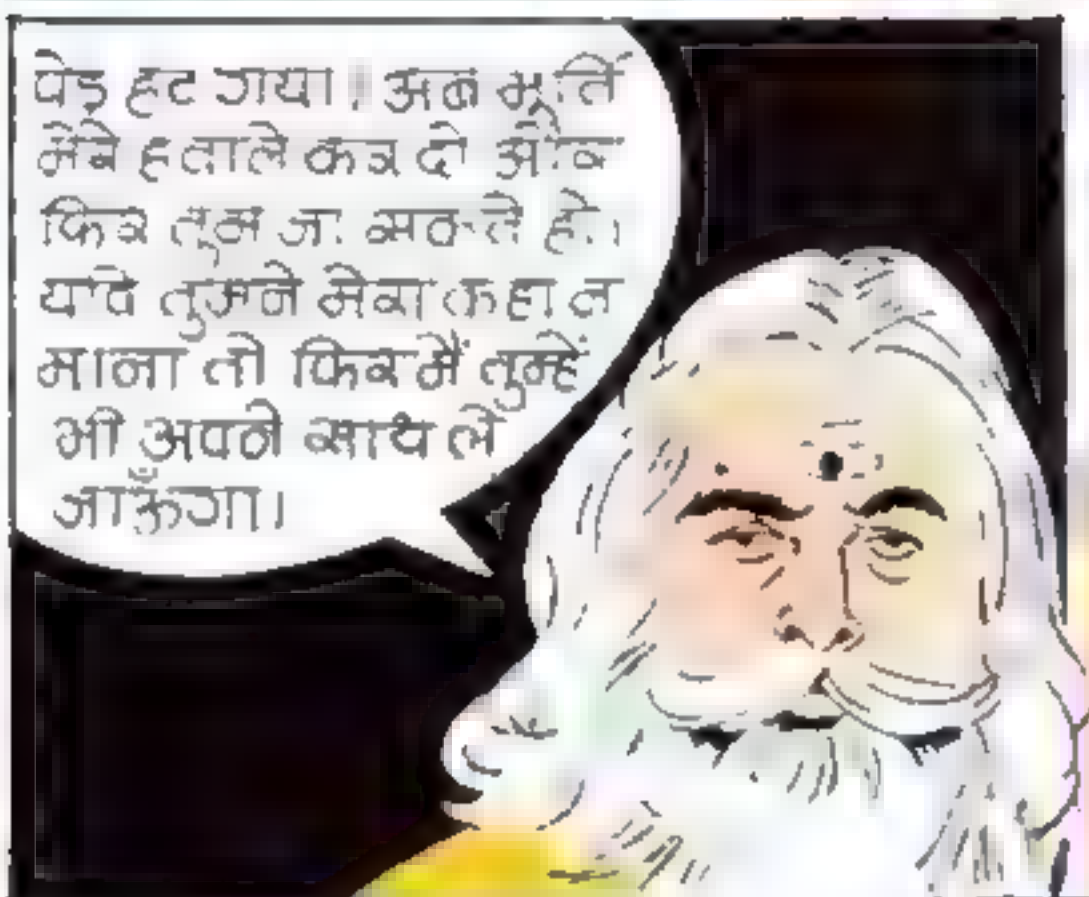 पेड़ हट गया। अब मूर्ति
मेरे हवाले कर दो और
फिर तुम जा सकते हो।
यदि तुमने मेरा कहा न
माना तो फिर मैं तुम्हें
भी अपने साथ ले
जाऊँगा।